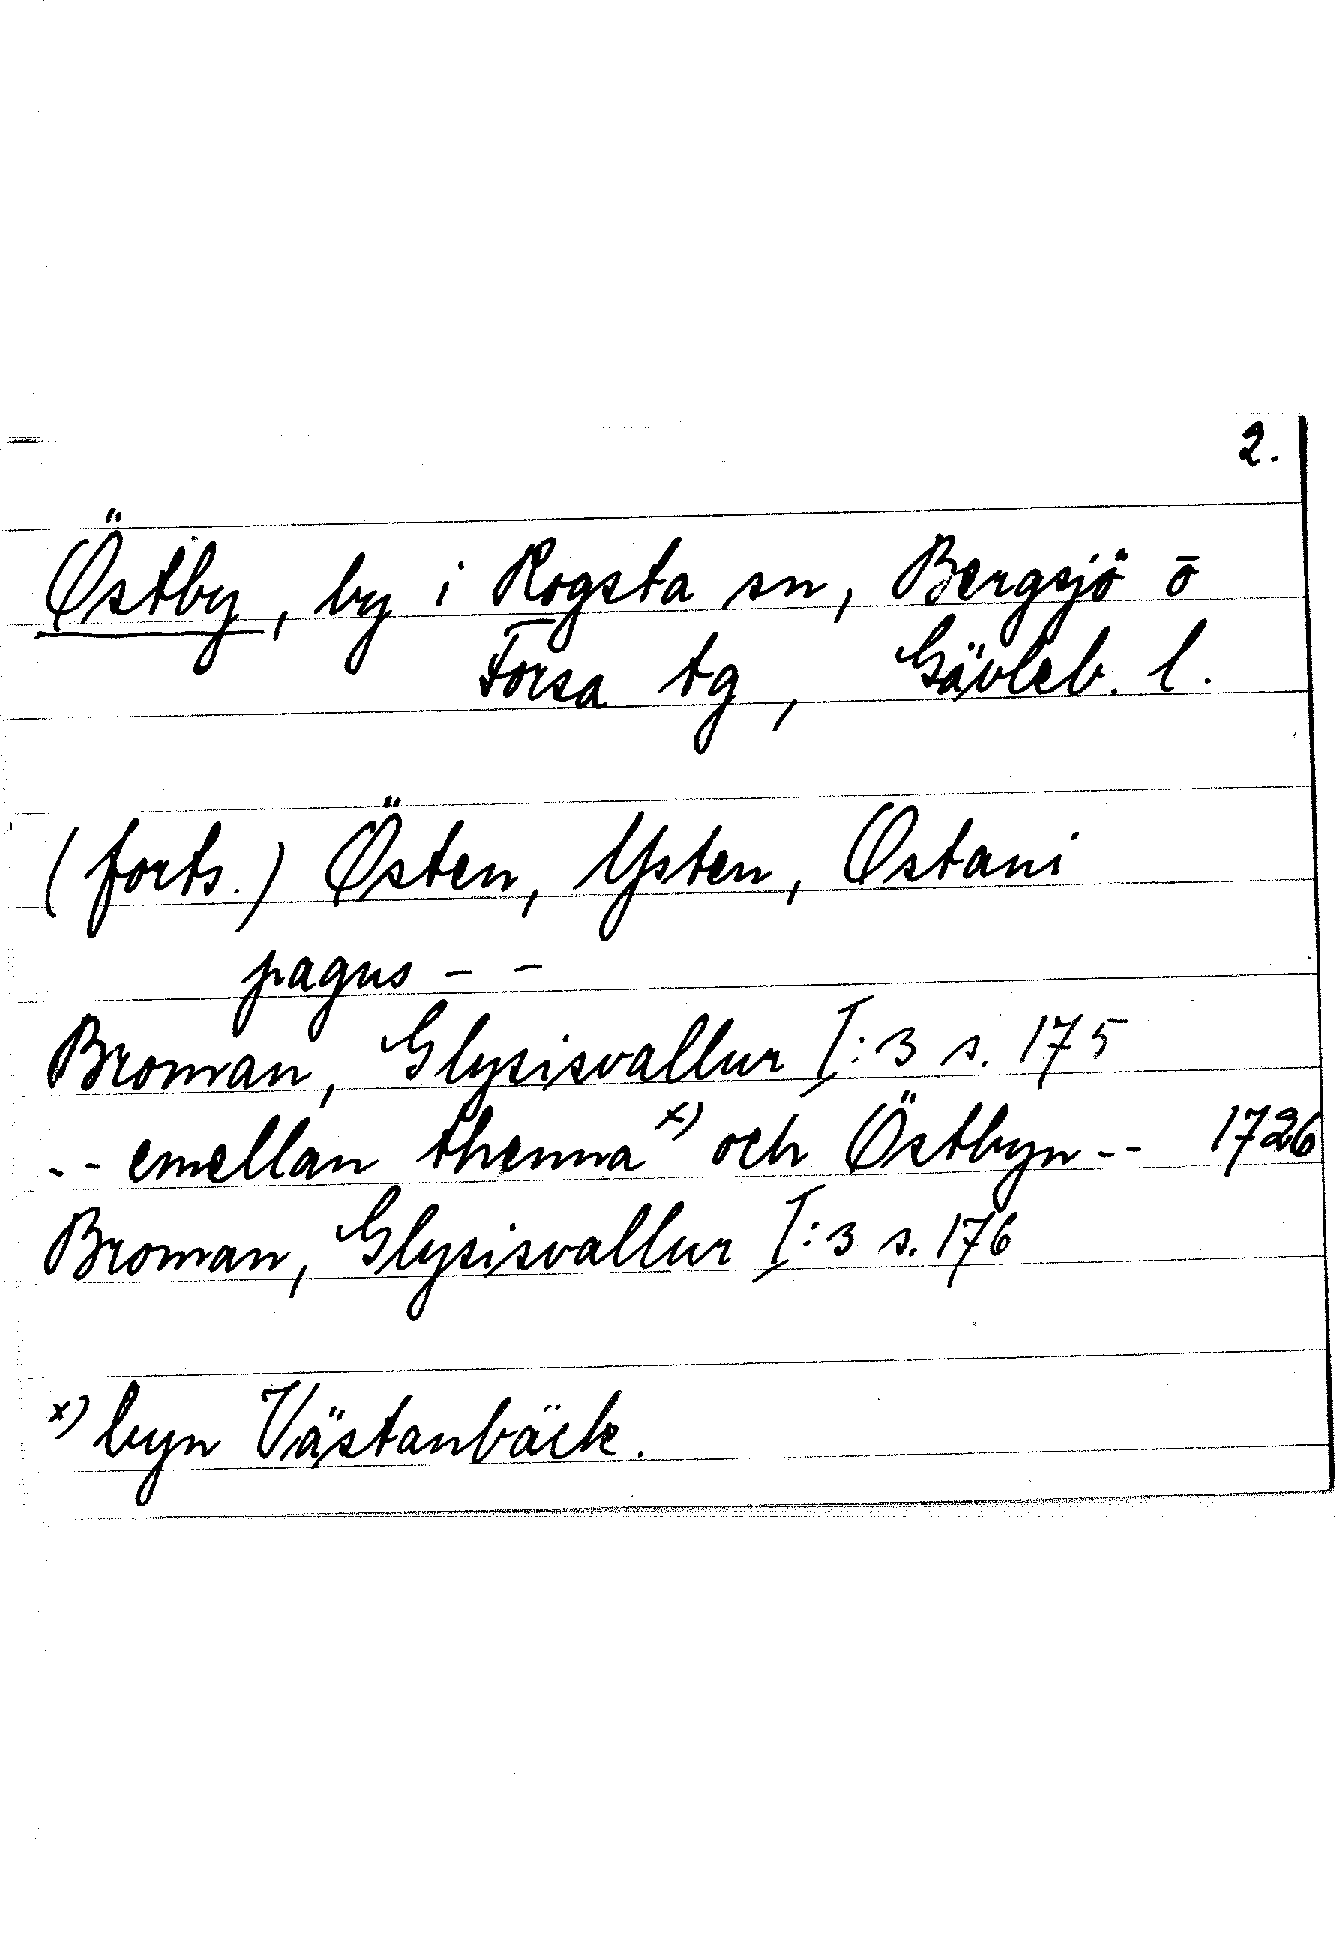 2.
Östby, by i Rogsta sn, Bergsjö o
Forsa tg, Gävleb. l.
(forts.) Östen, Ysten, Ostani
pagus - -
Broman, Glysisvallur I:3 s. 175
-- emellan thenna x) och Östbyn -- 1726
Broman, Glysisvallur I:3 s. 176
x) byn Västanbäck.